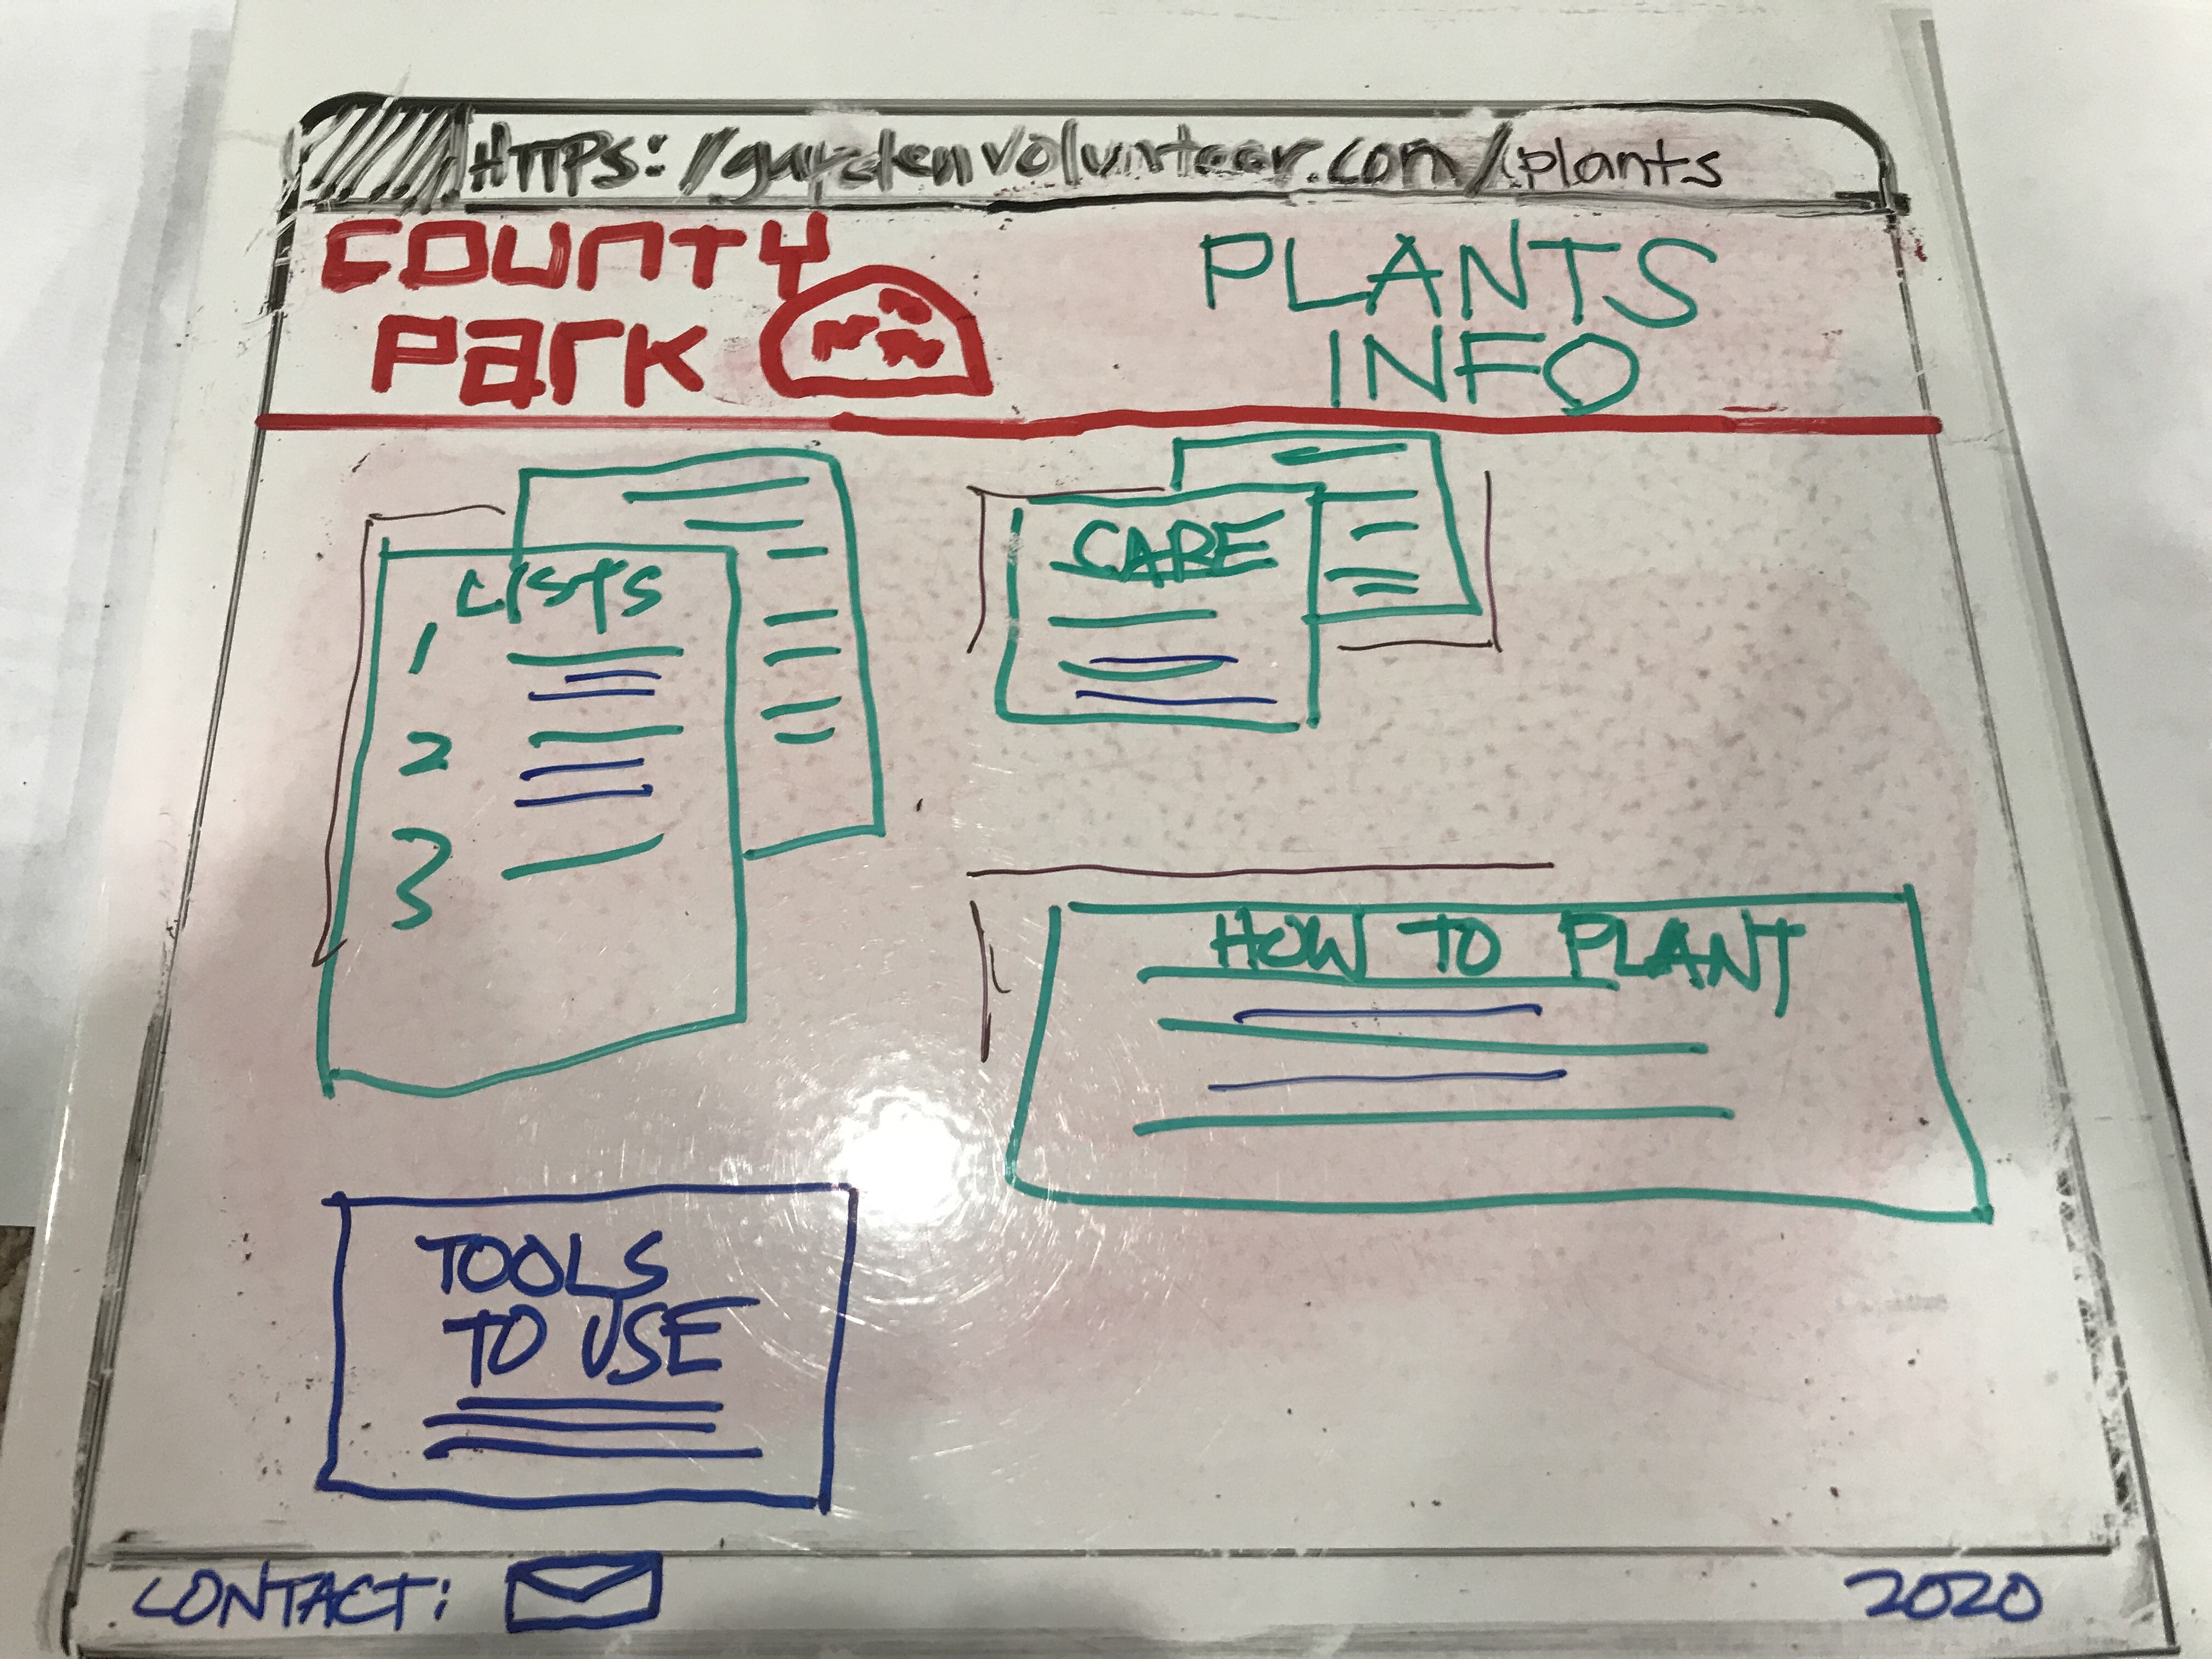 HTTPS://gardenvolunteer.com/plants
COUNTY
PARK
PLANTS
INFO
LISTS
1
2
3
CARE
HOW TO PLANT
TOOLS
TO USE
CONTACT:
2020